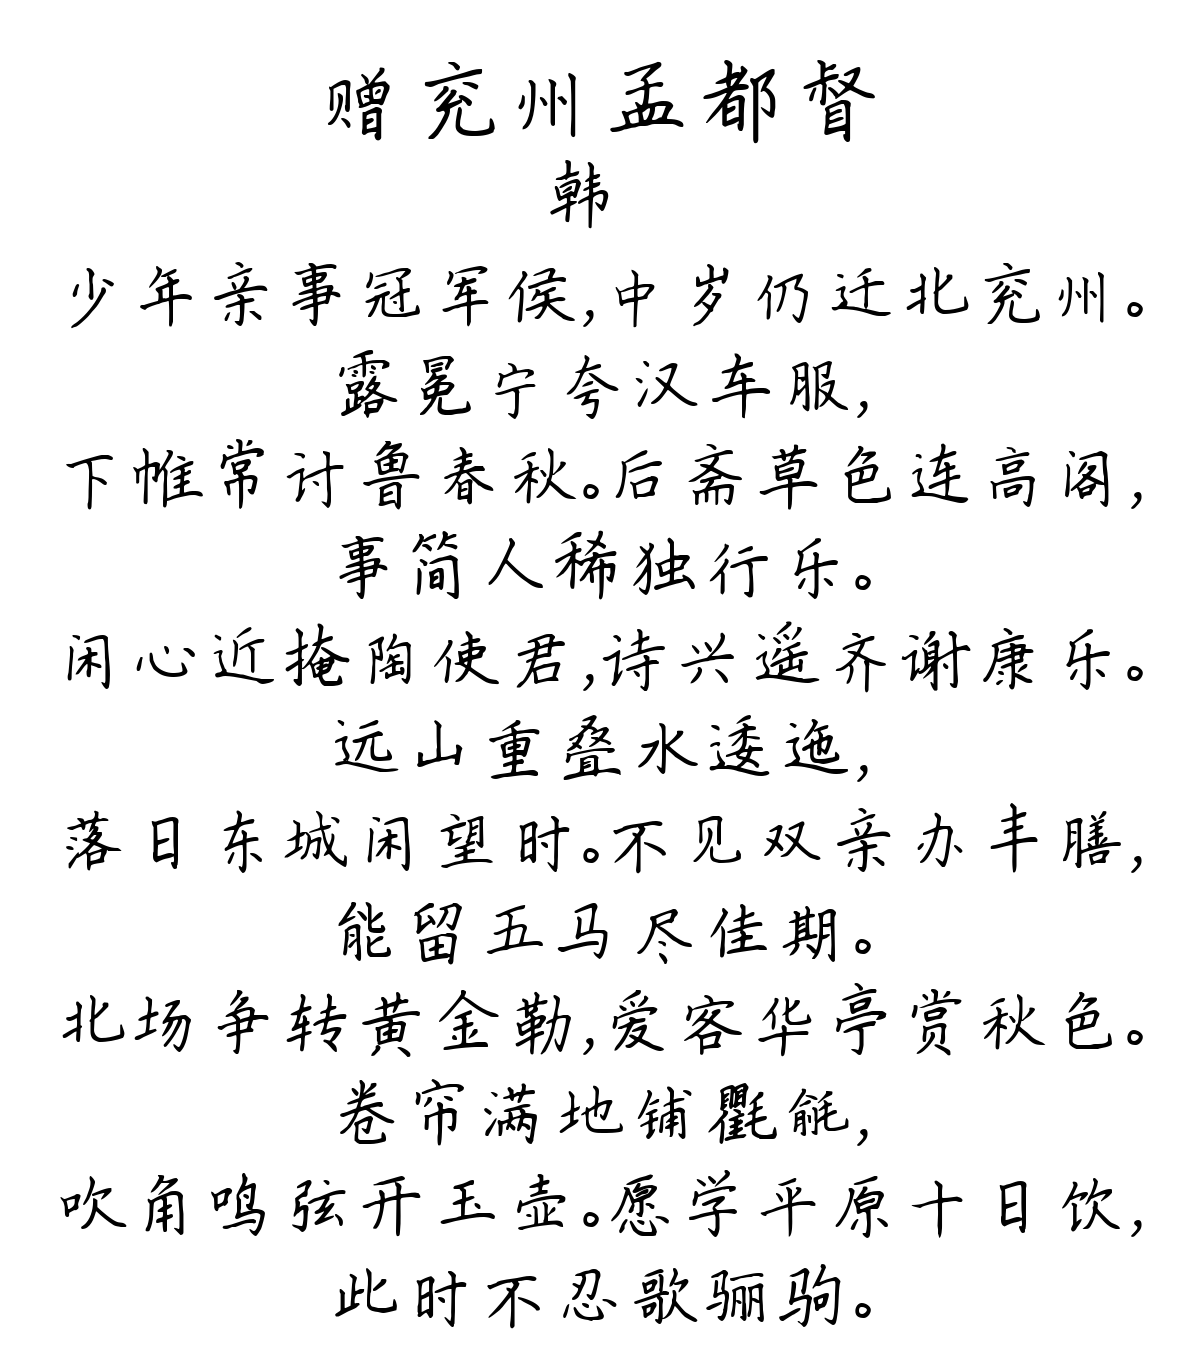 赠兖州孟都督
韩
少年亲事冠军侯,中岁仍迁北兖州。
露冕宁夸汉车服,
下帷常讨鲁春秋。后斋草色连高阁,
事简人稀独行乐。
闲心近掩陶使君,诗兴遥齐谢康乐。
远山重叠水逶迤,
落日东城闲望时。不见双亲办丰膳,
能留五马尽佳期。
北场争转黄金勒,爱客华亭赏秋色。
卷帘满地铺氍毹,
吹角鸣弦开玉壶。愿学平原十日饮,
此时不忍歌骊驹。